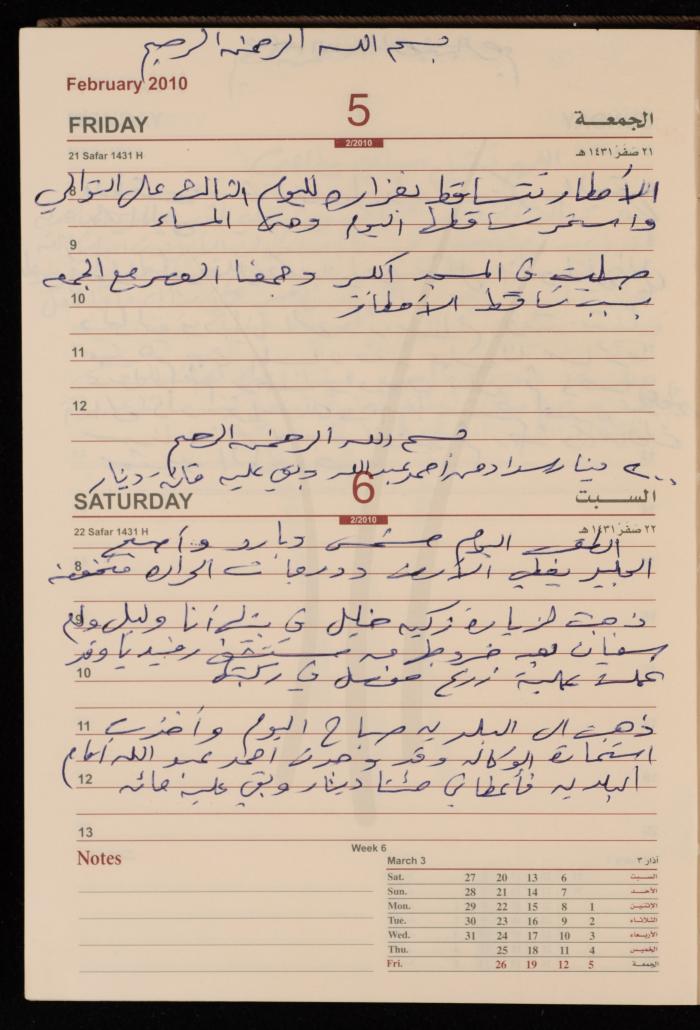 بسم الله الرحمن الرحيم
February 2010
FRIDAY 5 الجمعـــة
2/2010
21 Safar 1431 H ٢١ صَفَر ١٤٣١ هـ
8
الأمطار تتساقط بغزاره لليوم الثالث على التوالي
واستمر تساقطها اليوم وحتى المساء
9
صليت في المسجد اكبر وجمعنا العصر مع الجمعه
10
بسبب تساقط الأمطار
11
12
بسم الله الرحمن الرحيم
٢٠٠ دينار سداد من احمد عبد الله وبقي عليه مائة دينار
SATURDAY 6 الســـبت
2/2010
22 Safar 1431 H ٢٢ صَفَر ١٤٣١ هـ
الطقس اليوم مشمس وبارد وأصبح
8
الجليد يغطي الأرض ودرجات الحراره منخفضه
9
ذهبت لزيارة زكيه خليل في بيتها أنا و
سفيان بعد خروجها من مستشفى رفيديا وقد
10
عملت عملية زرع مفصل في ركبتها
11
ذهبت الى البلديه صباح اليوم وأخذت
استمارة الوكاله وقد وجدت احمد عبد الله أمام
12
البلديه فأعطاني مئتا دينار وبقي عليه مائه
13
Notes
Week 6
March 3 آذار ٣
Sat. 27 20 13 6 السـبت
Sun. 28 21 14 7 الأحـد
Mon. 29 22 15 8 1 الاثنـين
Tue. 30 23 16 9 2 الثلاثـاء
Wed. 31 24 17 10 3 الأربـعاء
Thu. 25 18 11 4 الخميس
Fri. 26 19 12 5 الجمعـة